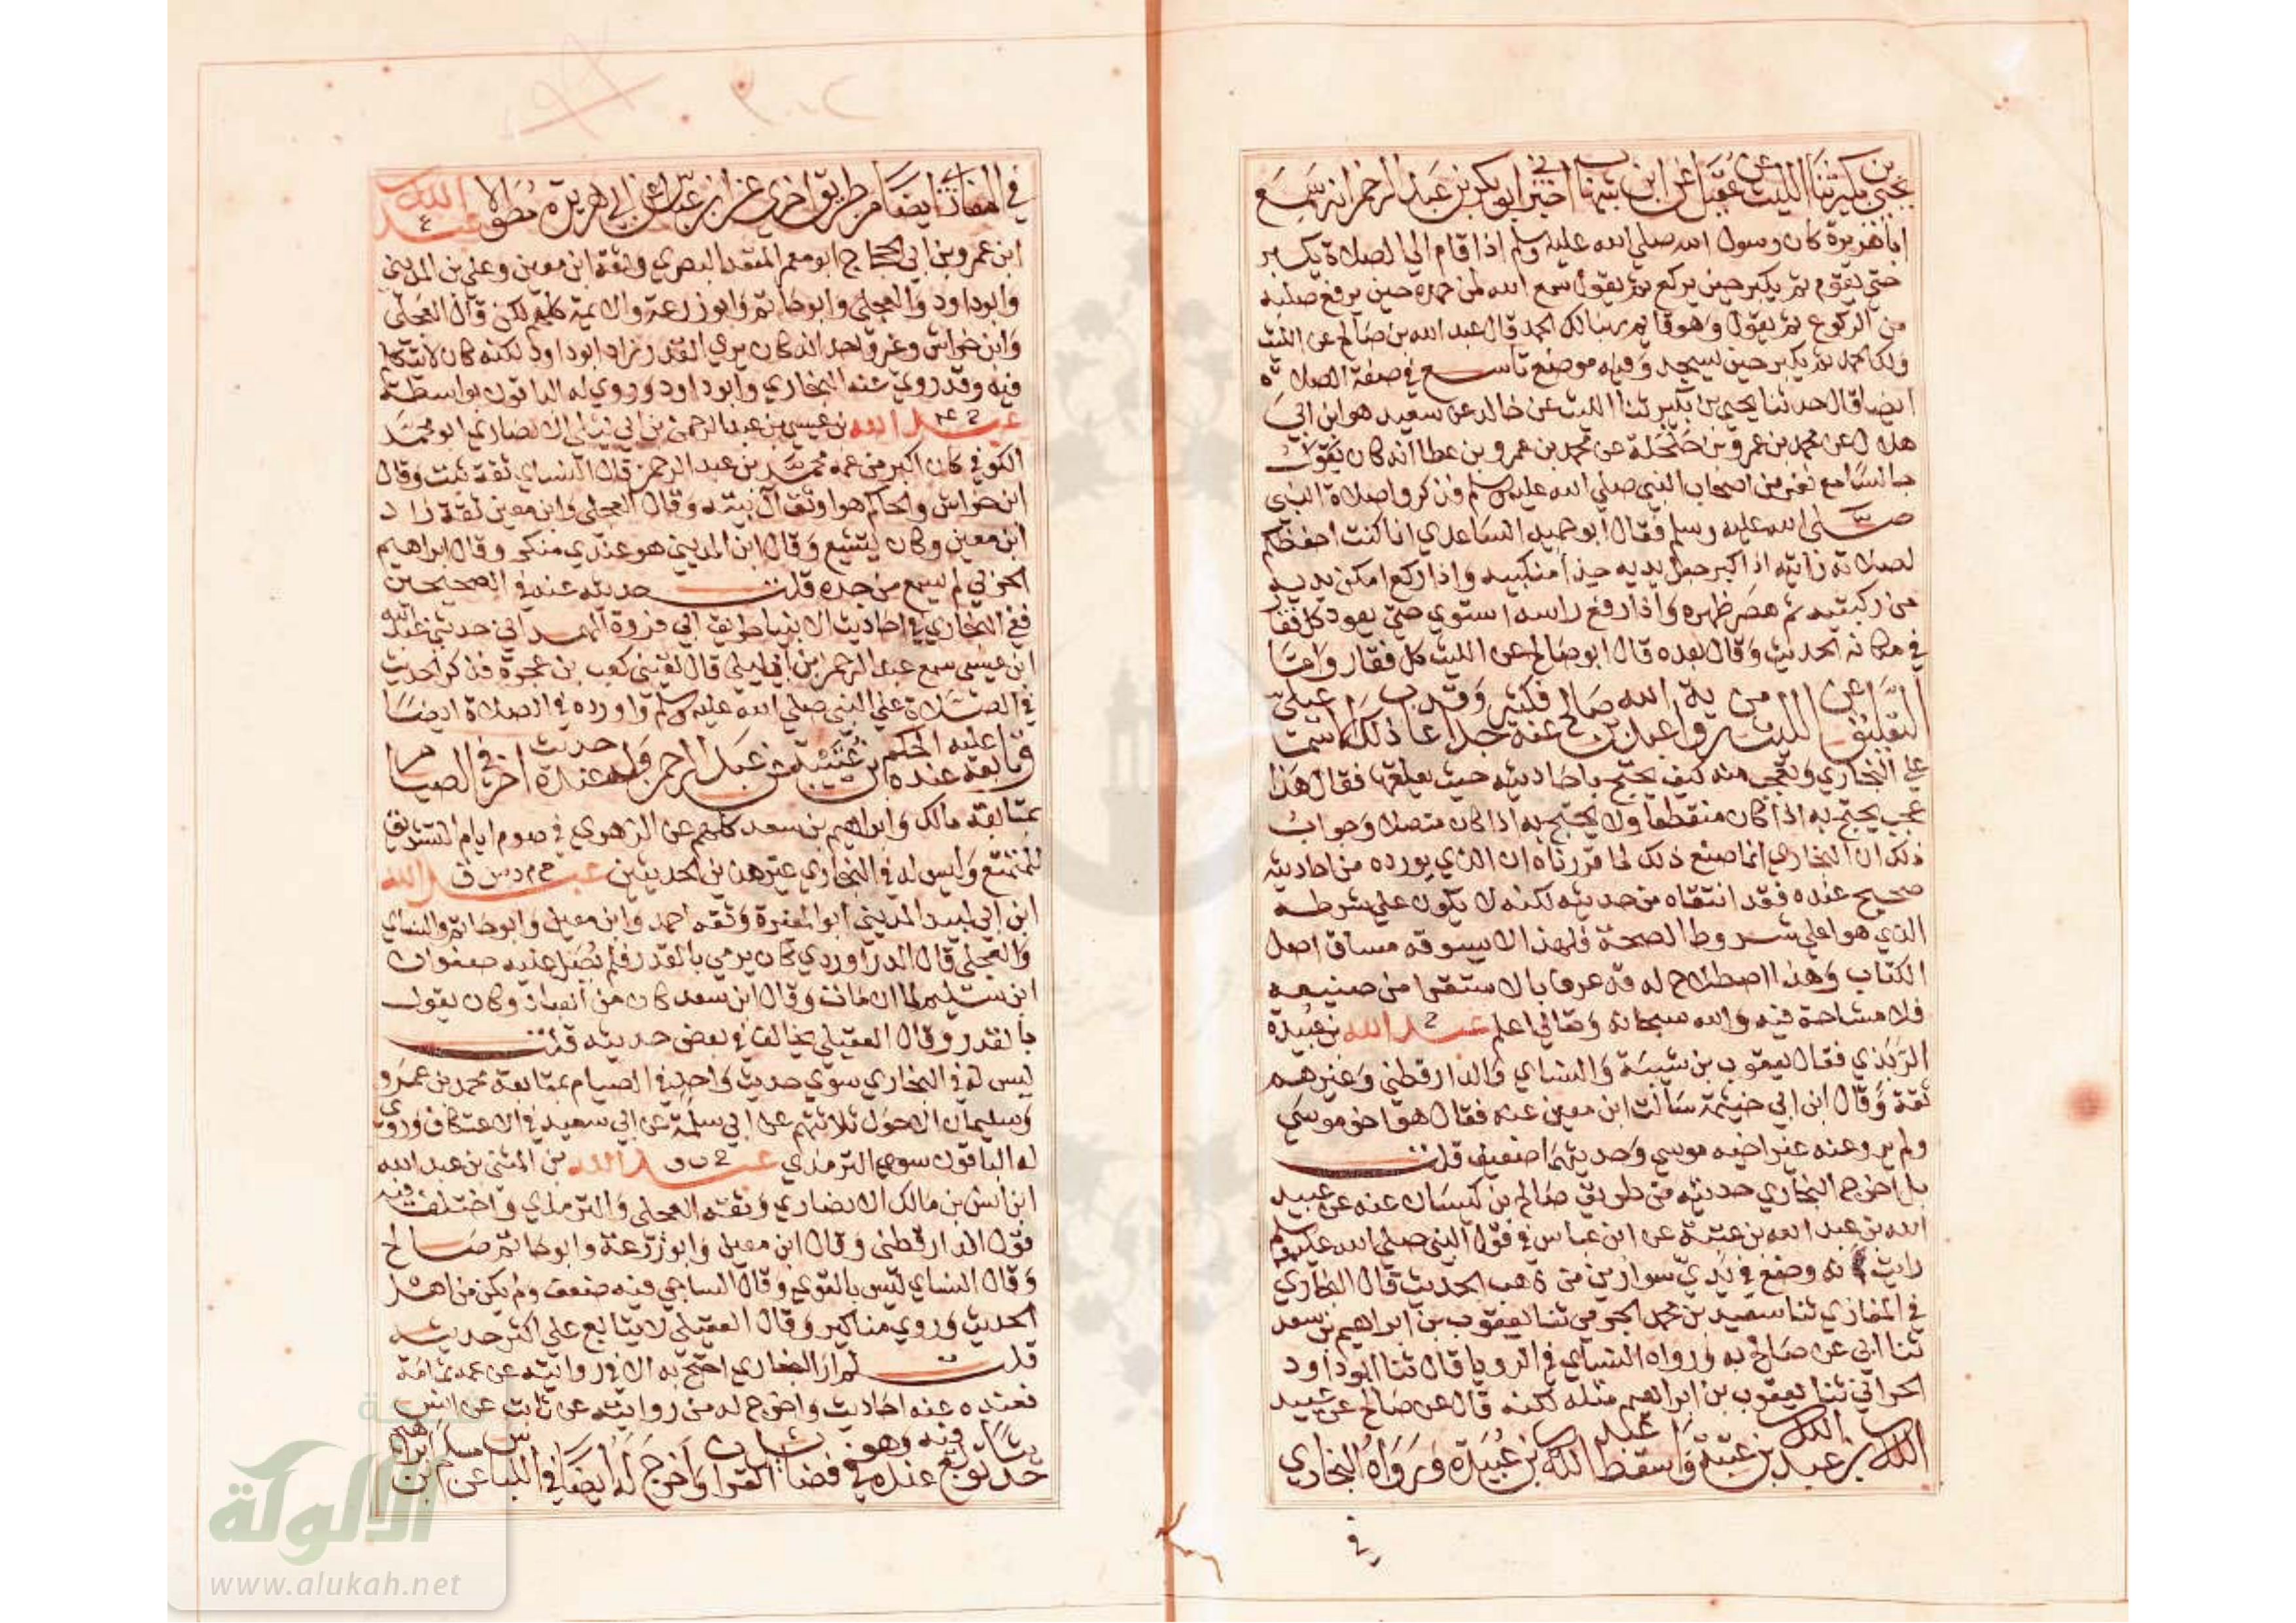 يحيى بن بكير ثنا الليث عن عقيل عن ابن شهاب اخبرني ابو بكر بن عبد الرحمن انه سمع
ابا هريرة كان رسول الله صلي الله عليه وسلم اذا قام الي الصلاة يكبر
حتى يقوم ثم يكبر حين يركع ثم يقول سمع الله لمن حمده حين يرفع صلبه
من الركوع ثم يقول وهو قايم ربنا لك الحمد قال عبد الله بن صالح عن الليث
ولك الحمد ثم يكبر حين يسجد وفيه موضع تاسع في صفة الصلاة
ايضا قال حدثنا يحيى بن بكير ثنا الليث عن خالد عن سعيد هو ابن ابي
هلال عن محمد بن عمرو بن حلحلة عن محمد بن عمرو بن عطا انه كان يقول
جالسا مع نفر من اصحاب النبي صلي الله عليه وسلم فذكروا صلاة النبي
صلى الله عليه وسلم فقال ابو حميد الساعدي انا كنت احفظكم
لصلاته رايته اذا كبر جعل يديه حذا منكبيه واذا ركع امكن يديه
من ركبتيه ثم هصر ظهره واذا رفع راسه استوي حتى يعود كل فقار
في مكانه الحديث وقال بعده قال ابو صالح عن الليث كل فقار واما
التعليق عن الليث من رواية عبد الله بن صالح عنه فكثير جدا وقد عاب ذلك الاسماعيلي
علي البخاري وتعجب منه كيف يحتج باحاديثه حيث يعلقها فقال هذا
عجب يحتج به اذا كان منقطعا ولا يحتج به اذا كان متصلا وجواب
ذلك ان البخاري انما صنع ذلك لما قررناه ان الذي يورده من احاديثه
صحيح عنده فقد انتقاه من حديثه لكنه لا يكون علي شرطه
الذي هو اعلي شروط الصحة فلهذا لا يسوقه مساق اصل
الكتاب وهذا اصطلاح له قد عرف بالاستقرا من صنيعه
فلا مشاحة فيه والله سبحانه وتعالي اعلم خ عبد الله بن عبيدة
الربذي فقال يعقوب بن شيبة والنساي والدارقطني وغيرهم
ثقة وقال ابن ابي خيثمة سالت ابن معين عنه فقال هو اخو موسي
ولم يرو عنه غير اخيه موسي وحديثهما ضعيف قلت
بل اخرج البخاري حديثه من طريق صالح بن كيسان عنه عن عبيد
الله بن عبد الله بن عتبة عن ابن عباس في قول النبي صلي الله عليه وسلم
رايت انه وضع في يدي سوارين من ذهب الحديث قال البخاري
في المغازي ثنا سعيد بن محمد الجرمي ثنا يعقوب بن ابراهيم بن سعد
ثنا ابي عن صالح به ورواه النساي في الرويا قال ثنا ابو داود
الحراني ثنا يعقوب بن ابراهيم مثله لكنه قال عن صالح عن عبيد
الله بن عبد الله بن عتبة فاسقط عبد الله بن عبيدة ورواه البخاري
في
في المغازي ايضا من طريق اخري عن ابن عباس عن ابي هريرة مطولا ع عبد الله
ابن عمرو بن ابي الحجاج ابو معمر المقعد البصري وثقه ابن معين وعلي بن المديني
وابو داود والعجلي وابو حاتم وابو زرعة والايمة كلهم لكن قال العجلي
وابن خراش وغير واحد انه كان يري القدر زاد ابو داود لكنه كان لا يتكلم
فيه وقد روي عنه البخاري وابو داود وروي له الباقون بواسطة
ع عبد الله بن عيسى بن عبد الرحمن بن ابي ليلي الانصاري ابو محمد
الكوفي كان اكبر من عمه محمد بن عبد الرحمن قال النساي ثقة ثبت وقال
ابن خراش والحاكم هو اوثق آل بيته وقال العجلي وابن معين ثقة زاد
ابن معين وكان يتشيع وقال ابن المديني هو عندي منكر وقال ابراهيم
الحربي لم يسمع من جده قلت حديثه عنه في الصحيحين
ففي البخاري في احاديث الانبيا طريق ابي فروة الهمداني حدثني عبد الله
ابن عيسى سمع عبد الرحمن بن ابي ليلي قال لقيني كعب بن عجرة فذكر الحديث
في الصلاة علي النبي صلي الله عليه وسلم واورده في الصلاة ايضا
وتابعه عليه عنده الحكم بن عتيبة عن عبد الرحمن وله عنده حديث آخر في الصيام
بمتابعة مالك وابراهيم بن سعد كلهم عن الزهري في صوم ايام التشريق
للمتمتع وليس له في البخاري غير هذين الحديثين خ م د س ق عبد الله
ابن ابي لبيد المديني ابو المغيرة وثقه احمد وابن معين وابو حاتم والنساي
والعجلي قال الدراوردي كان يرمي بالقدر فلم يصل عليه صفوان
ابن سليم لما ان مات وقال ابن سعد كان من العباد وكان يقول
بالقدر وقال العقيلي يخالف في بعض حديثه قلت
ليس له في البخاري سوي حديث واحد في الصيام بمتابعة محمد بن عمرو
وسليمان الاحول ثلاثتهم عن ابي سلمة عن ابي سعيد في الاعتكاف وروي
له الباقون سوي الترمذي خ ت ق عبد الله بن المثنى بن عبد الله
ابن انس بن مالك الانصاري وثقه العجلي والترمذي واختلف فيه
قول الدارقطني وقال ابن معين وابو زرعة وابو حاتم صالح
وقال النساي ليس بالقوي وقال الساجي فيه ضعف ولم يكن من اهل
الحديث وروي مناكير وقال العقيلي لا يتابع علي اكثر حديثه
قلت لم ار البخاري احتج به الا في روايته عن عمه ثمامة
فعنده عنه احاديث واخرج له من روايته عن ثابت عن انس
حديثا توبع فيه عنده وهو في فضايل القران واخرج له ايضا في اللباس عن مسلم بن ابراهيم
الألوكة
www.alukah.net